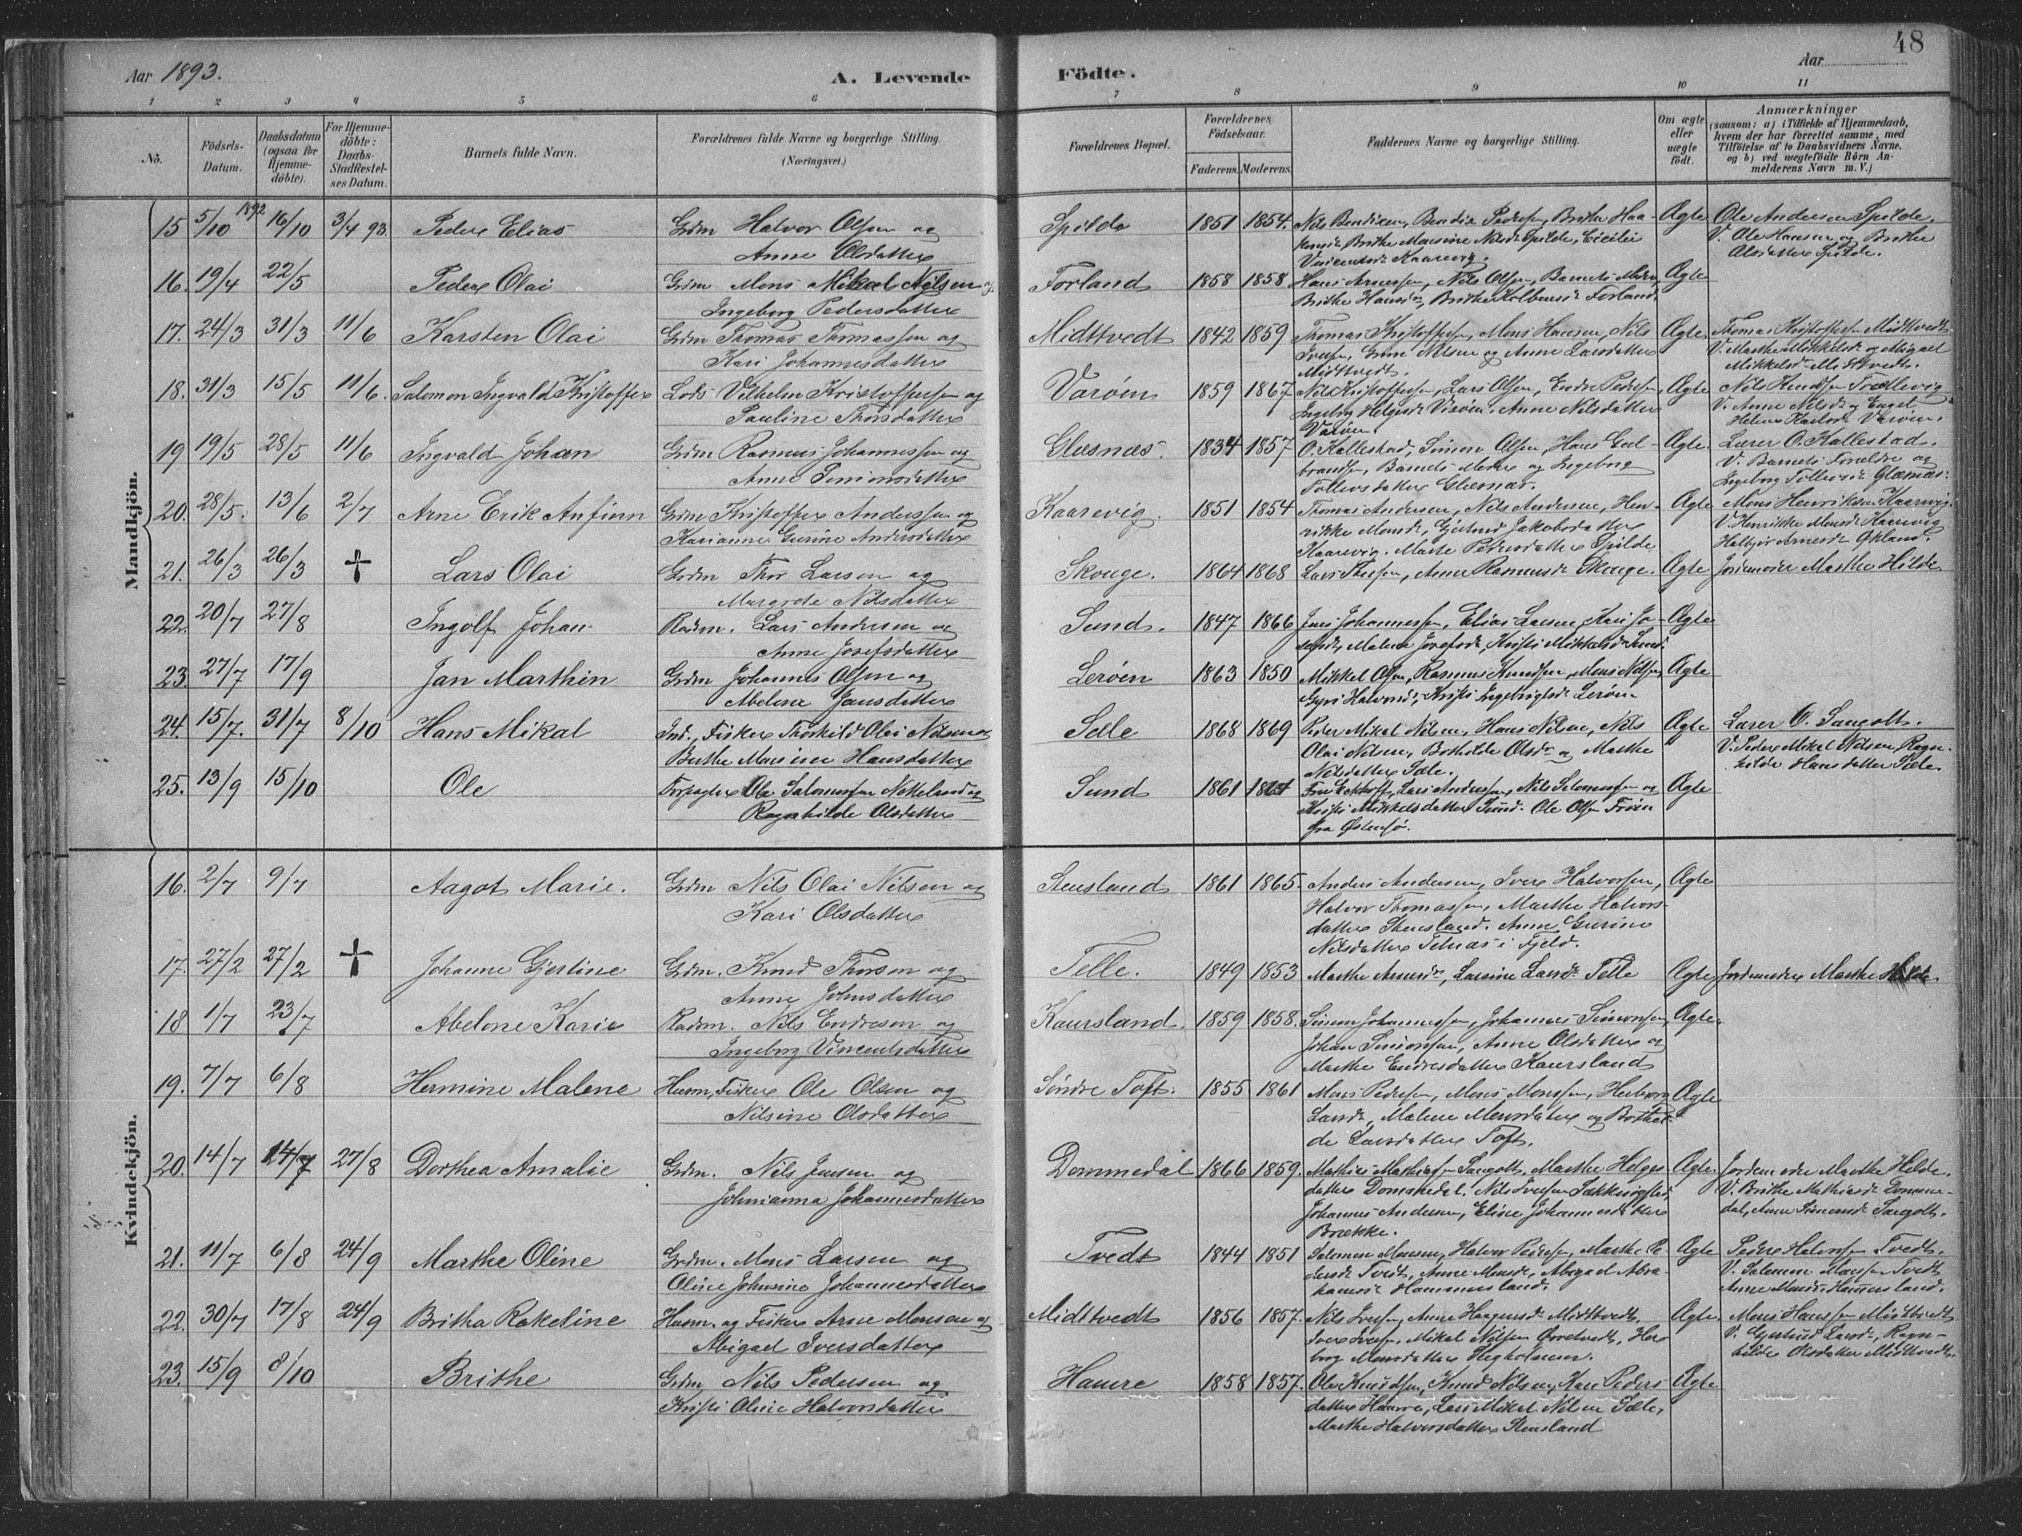 48
Aar 1893.
A. Levende
Födte.
Aar
1 2 3 4 5 6 7 8 9 10 11
No.
Födsels-Datum.
Daabsdatum (ogsaa for Hjemme-döbte).
For Hjemme-döbte: Daabs-Stadfæstel-ses Datum.
Barnets fulde Navn.
Forældrenes fulde Navne og borgerlige Stilling.
(Næringsvei.)
Forældrenes Bopæl.
Forældrenes Födselsaar.
Faderens. Moderens.
Faddernes Navne og borgerlige Stilling.
Om ægte eller uægte födt.
Anmærkninger
(saasom: a) i Tilfælde af Hjemmedaab, hvem der har forrettet samme, med Tilföielse af to Daabsvidners Navne. og b) ved uægtefödte Börn An-melderens Navn m. V.)
Mandkjön.
15 5/10 1892 16/10 3/4 93. Peder Elias Grdm Halvor Olsen og Spilde 1851 1854. Nils Bendixen, Bendix Pedersen, Brithe Ægte Ole Andersen Spilde.
Anne Olsdatter V. Ole Hansen og Brithe
Olsdatter Spilde.
16. 19/4 22/5 Peder Olai Grdm Mons Mikal Nilsen og Forland 1858 1858 Hans Arnessen, Nils Olsen, Barnets Moder, Ægte
Ingeborg Pedersdatter
17. 24/3 31/3 11/6 Karsten Olai Grdm Thomas Thomassen og Midttvedt 1842 1859 Thomas Kristoffersen, Mons Hansen, Nils Ægte Thomas Kristoffersen Midttvedt
Kari Johannesdatter Iversen, Nilsen og Anne Larsdatter
Midttvedt.
18. 31/3 15/5 11/6. Salomon Ingvald Kristoffer Lods Vilhelm Kristoffersen og Varöen 1859 1867 Nils Kristoffersen, Lars Olsen, Endre Pedersen, Ægte Nils Knudsen Trællevig
Pauline Thorsdatter Varöen. Anne Nilsdatter
Varöen.
19 19/5 28/5 11/6 Ingvald Johan Grdm Rasmus Johannessen og Glesnæs. 1834 1857 O. Kallestad, Simon Olsen, Hans Gul- Ægte Lærer O. Kallestad.
Anne Simonsdatter brandsen, Barnets Moder og Ingeborg V. Barnets Forældre og
Tollevsdatter Glesnæs. Ingeborg Glesnæs.
20. 28/5. 13/6 2/7 Arne Erik Anfinn Grdm Kristoffer Anderssen og Kaarevig. 1851 1854 Thomas Andersen, Nils Andersen, Hen- Ægte Mons Henriksen Kaarevig.
Karianne Gurine Andersdatter rikke Monsdr, Gjertrud Jakobsdatter V. Henrikke Monsdr Kaarevig
Kaarevig. Marte Pedersdatter Spilde
21. 26/3 26/3 † Lars Olai Grdm Thor Larsen og Skoge. 1864 1868 Lars Thorsen, Anne Rasmusdr Skoge. Ægte Jordmoder Marthe Hilde.
Margrete Nilsdatter
22. 20/7 27/8 Ingolf Johan Radm. Lars Andersen og Sund. 1847 1866 Jens Johannessen, Elias Larsen, Kari Ægte
Anne Josefsdatter Malene Josefsdr, Kristi Mikkelsdr Sund.
23. 27/7 17/9 Jan Marthin Grdm Johannes Olsen og Leröen 1863 1850 Mikkel Olsen, Rasmus Knudsen, Mons Nilsen, Ægte
Abelone Jansdatter Leröen
24. 15/7. 31/7 8/10 Hans Mikal Ind., Fisker Thorkild Olai Nilsen og Selle 1868 1869 Peder Mikal Nilsen, Hans Nilsen, Nils Ægte Lærer O. Sangolt.
Berthe Marsine Hansdatter Olai Nilsen, Bothilde Olsdr og Marthe V. Peder Mikal Nilsen, Ragn-
Nilsdatter Sæle. hilde Hansdatter Sæle.
25. 13/9 15/10 Ole Forpagter Ole Salomonsen Nekkeland og Sund 1861 Lars Anderssen, Nils Salomonsen og Ægte
Ragnhilde Olsdatter Kristi Mikkelsdatter Sund. Ole Olsen
fra Østensö.
Kvindekjön.
16. 2/7 9/7 Aagot Marie. Grdm Nils Olai Nilsen og Stensland 1861 1865. Anders Andersen, Iver Halvorsen, Ægte
Kari Olsdatter Halvor Thomassen, Marthe Halvors-
datter Stensland. Anne Gurine
Nilsdatter Telnæs i Fjeld.
17. 27/2 27/2 † Johanne Gjertine Grdm. Knud Thorsen og Telle. 1849 1853 Marthe Arnesdr, Larsine Larsdr Telle Ægte Jordmoder Marthe Hilde.
Anne Johnsdatter
18 1/7 23/7 Abelone Karie Radm. Nils Endresen og Kaursland. 1859 1858. Simon Johannessen, Johannes Simonsen, Ægte.
Ingeborg Vincentsdatter Johan Simonsen, Anne Olsdatter og
Marthe Endresdatter Kaursland
19. 7/7 6/8 Hermine Malene Husm, Fisker Ole Olsen og Söndre Toft. 1855 1861 Mons Pedersen, Mons Monssen, Herborg Ægte
Nilsine Olsdatter Larsdr, Malene Monsdatter og Bothel-
de Larsdatter Toft.
20. 14/7 14/7 27/8 Dorthea Amalie Grdm. Nils Jensen og Dommedal 1866 1859. Mathias Mathiassen Sangolt. Marthe Helges- Ægte. Jordemoder Marthe Hilde.
Johnianna Johannesdatter datter Dommedal. Nils Iversen V. Brithe Mathiasdr Domme-
Johannes Andersen, Eline Johannesdatter dal, Anne Simonsdr Sangolt.
Brække.
21. 11/7 6/8 24/9 Marthe Oline Grdm. Mons Larsen og Tvedt 1844 1851 Salomon Monsen, Halvor Pedersen, Marthe Pe- Ægte Peder Halvorsen Tvedt.
Oline Johnsine Johannesdatter dersdr Tvedt, Anne Monsdr, Abigael Abra- V. Salomon Monsen Tvedt
hamsdr Hammersland. Anne Monsdr Hammersland.
22. 30/7 17/8 24/9 Britha Rakeline Husm. og Fisker Arne Monsen og Midttvedt 1856 1857. Nils Iversen, Anne Haagensdr Midttvedt, Ægte. Mons Hanssen Midttvedt
Abigael Iversdatter Iver Iversen, Mikal Nilsen, Her- V. Gjertrud Larsdr, Ragn-
borg Monsdatter hilde Olsdatter Midttvedt.
23. 15/9 8/10 Brithe Grdm. Nils Pedersen og Haure 1858 1857. Ole Knudsen, Knud Nilsen, Kari Peders Ægte
Kristi Oline Halvorsdatter datter Haure, Lars Mikal Nilsen Sæle,
Marthe Halvorsdatter Stensland